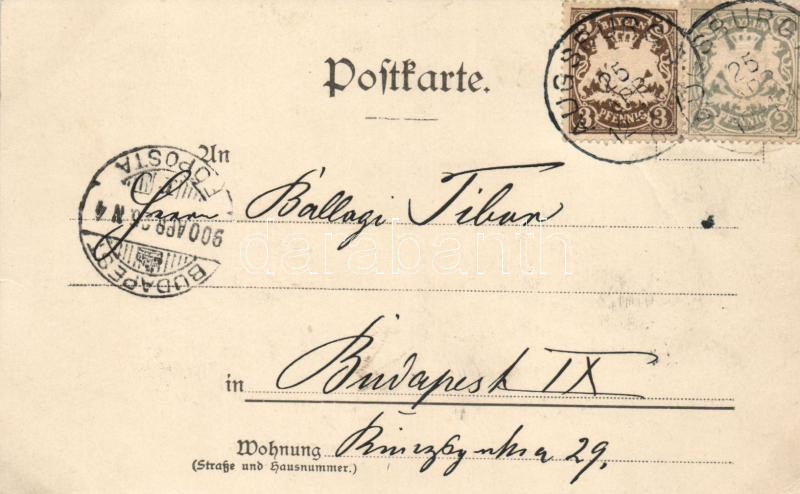 BAYERN
3 PFENNIG 3
BAYERN
2 PFENNIG 2
AUGSBURG
25
AUGSBURG
25
Postkarte.
FŐPOSTA
900 APR
N 4
BUDAPEST
An
Herrn Ballagi Tibor
darabanth
in Budapest IX
Wohnung 29.
(Straße und Hausnummer.)